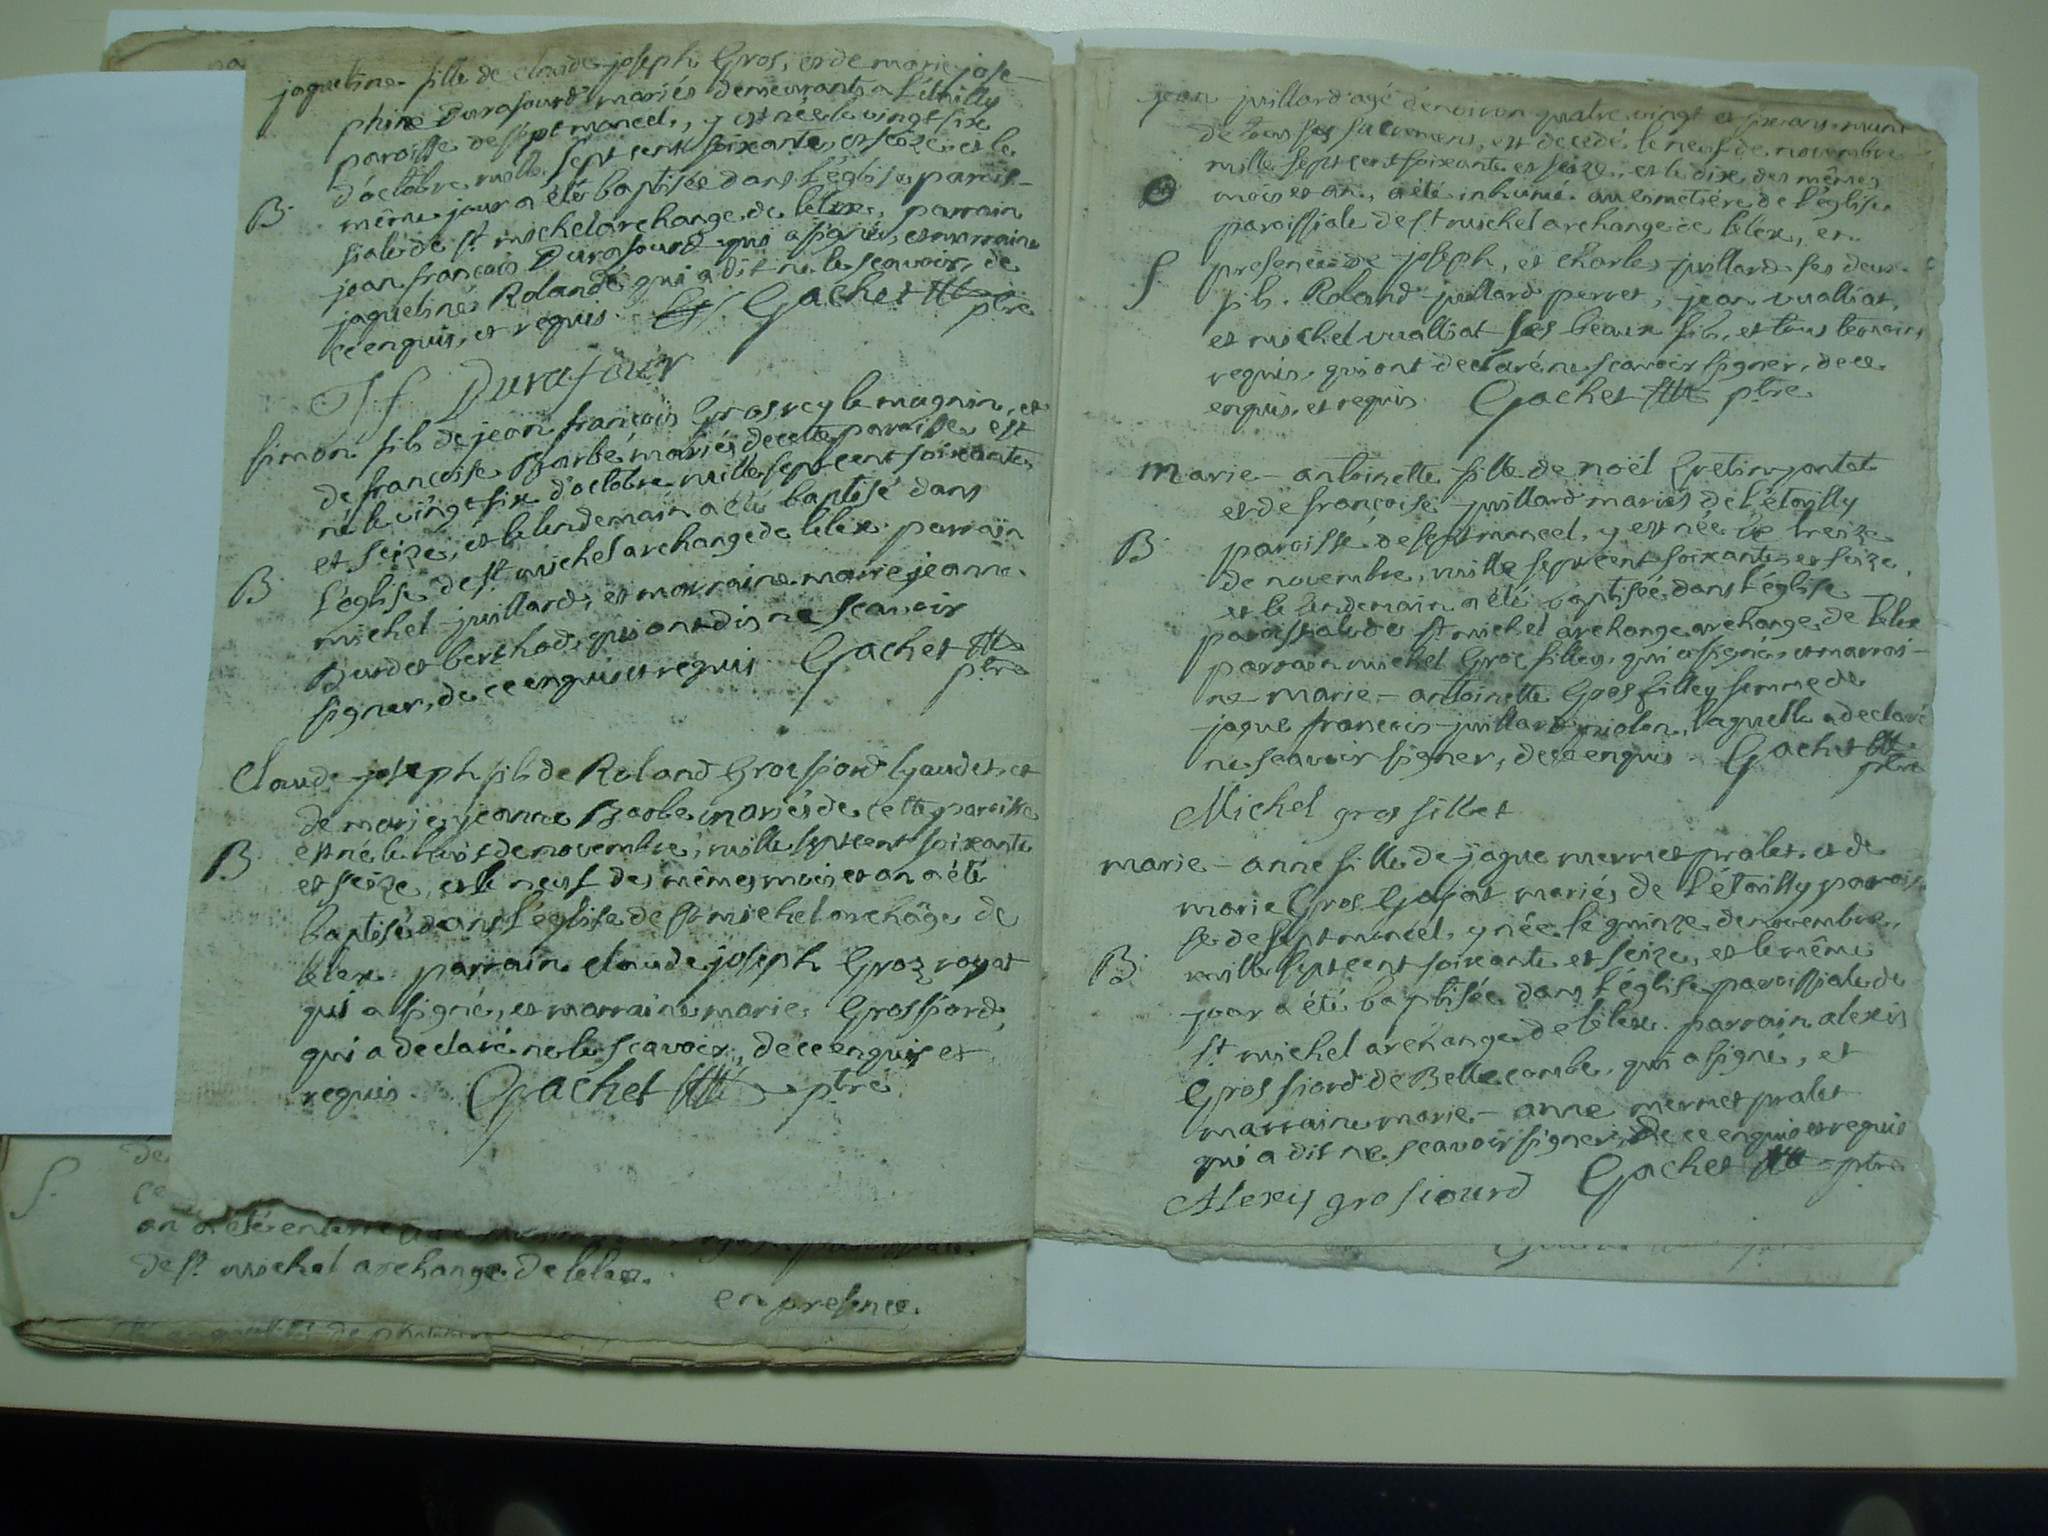 jaqueline fille de claude joseph Gros, et de marie jose-
phine Durafourd mariés demeurants a L'étoilly
paroisse de sept moncel, y est née le vingt six
d'octobre mille sept cent soixante et seize et le
même jour a été baptisée dans L'église parois-
B
siale de st. michel archange de lelex, parrain
jean françois Durafourd qui a signé, et marraine
jaqueline Rolandé qui a dit ne le scavoir, de
ce enquis, et requis. Gachet ptre
J f Durafour
simon fils de jean françois Grosrey le magnin, et
de françoise Barbé mariés de cette paroisse est
né le vingt six d'octobre mille sept cent soixante
et seize, et le lendemain a été baptisé dans
B
L'église de st. michel archange de lelex. parrain
michel juillard, et marraine marie jeanne
Burdet berthod, qui ont dis ne scavoir
signer, de ce enquis et requis Gachet
ptre
Claude joseph fils de Roland Grosfiord et
de marie jeanne Barbe mariés de cette paroisse
est né le huit de novembre, mille sept cent soixante
B
et seize, et le neuf des mêmes mois et an a été
baptisé dans L'église de st michel archãge de
lelex. parrain claude joseph Groz royat
qui a signé, et marraine marie Grosfiord,
qui a declaré ne le scavoir, de ce enquis et
requis. Gachet ptre
S.
an a été enterré
de st. michel archange de lelex.
en presence
jean juillard agé d'environ quatre vingt et six ans muni
de tous ses sacremens, est decedé le neuf de novembre
mille sept cent soixante et seize, et le dix des mêmes
mois et an, a été inhumé au cimetiére de L'église
paroissiale de st michel archange de lelex, en
S.
presence de joseph, et charles juillard ses deux
fils. Roland juillard perret, jean vualliat,
et michel vualliat ses beaux fils, et tous temoins
requis, qui ont declaré ne scavoir signer, de ce
enquis, et requis. Gachet ptre
marie - antoinette fille de noël jantet
et de françoise juillard mariés de L'étoilly
B
paroisse de septmoncel, y est née le treize
de novembre, mille sept cent soixante et seize,
et le lendemain a été baptisée dans L'église
paroissiale de st. michel archange archange de lelex
parrain michel Gros filley, qui a signé, et marrai-
ne marie - antoinette Gros filley femme de
jaque francois juillard molon, laquelle a declaré
ne scavoir signer, de ce enquis Gachet
ptre
Michel gros fillet
marie - anne fille de jaque mermet pralet, et de
marie Gros mariés de L'étoilly parois
se de septmoncel, y née le quinze de novembre,
B.
mille sept cent soixante et seize, et le même
jour a été baptisée dans L'église paroissiale de
st. michel archange de lelex. parrain alexis
Gros fiord de Bellecombe, qui a signé, et
marraine marie - anne mermet pralet
qui a dit ne scavoir signer, de ce enquis et requis
Alexis grosiourd Gachet ptre